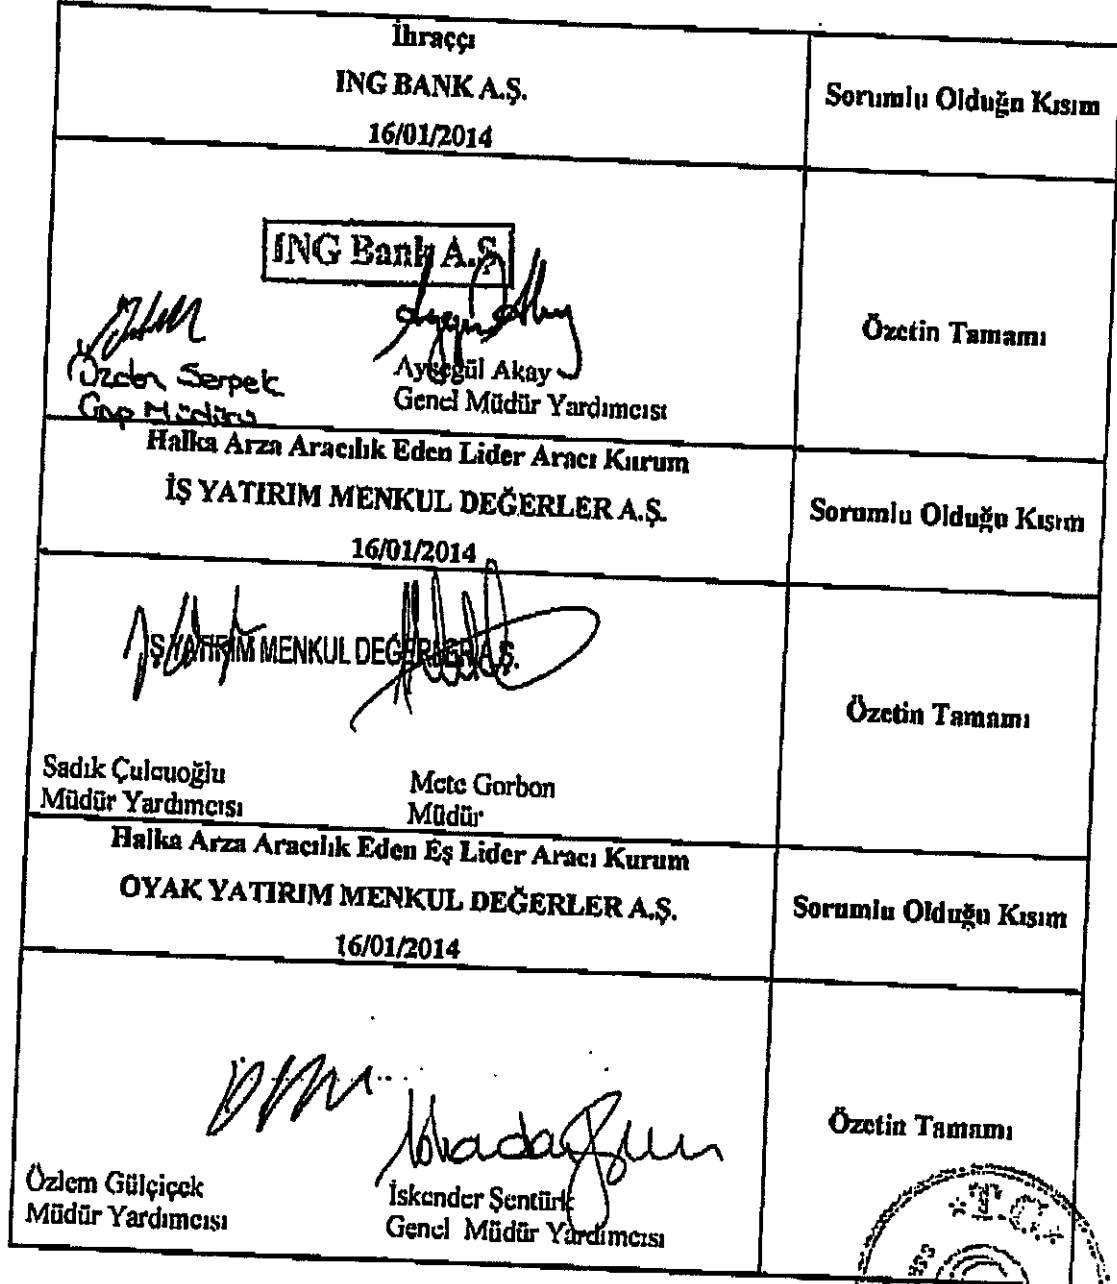 İhraççı
ING BANK A.Ş.
16/01/2014
Sorumlu Olduğu Kısım
ING Bank A.Ş.
Özden Serpek
Grup Müdürü
Ayşegül Akay
Genel Müdür Yardımcısı
Özetin Tamamı
Halka Arza Aracılık Eden Lider Aracı Kurum
İŞ YATIRIM MENKUL DEĞERLER A.Ş.
16/01/2014
Sorumlu Olduğu Kısım
İŞ YATIRIM MENKUL DEĞERLER A.Ş.
Sadık Çulcuoğlu
Müdür Yardımcısı
Mete Gorbon
Müdür
Özetin Tamamı
Halka Arza Aracılık Eden Eş Lider Aracı Kurum
OYAK YATIRIM MENKUL DEĞERLER A.Ş.
16/01/2014
Sorumlu Olduğu Kısım
Özlem Gülçiçek
Müdür Yardımcısı
İskender Şentürk
Genel Müdür Yardımcısı
Özetin Tamamı
T.C.